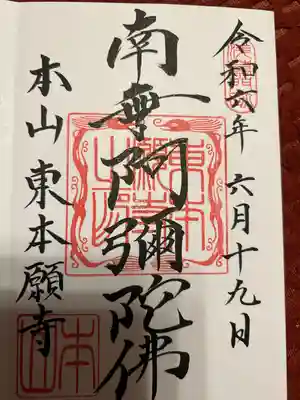 令和六年 六月十九日
南無阿彌陀佛
本山 東本願寺
本山